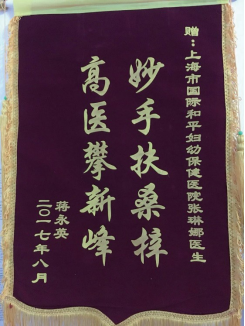 赠：上海市国际和平妇幼保健医院张琳娜医生
妙手扶桑梓
高医攀新峰
蒋永英
二〇一七年八月